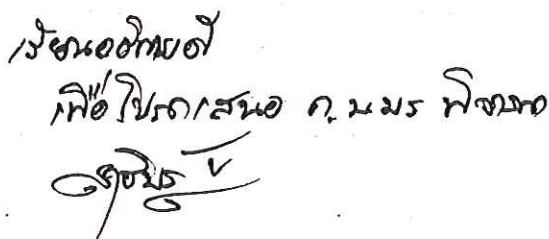 เรียนอธิการบดี
เพื่อโปรดเสนอ ก.บ.ม.ร พิจารณา